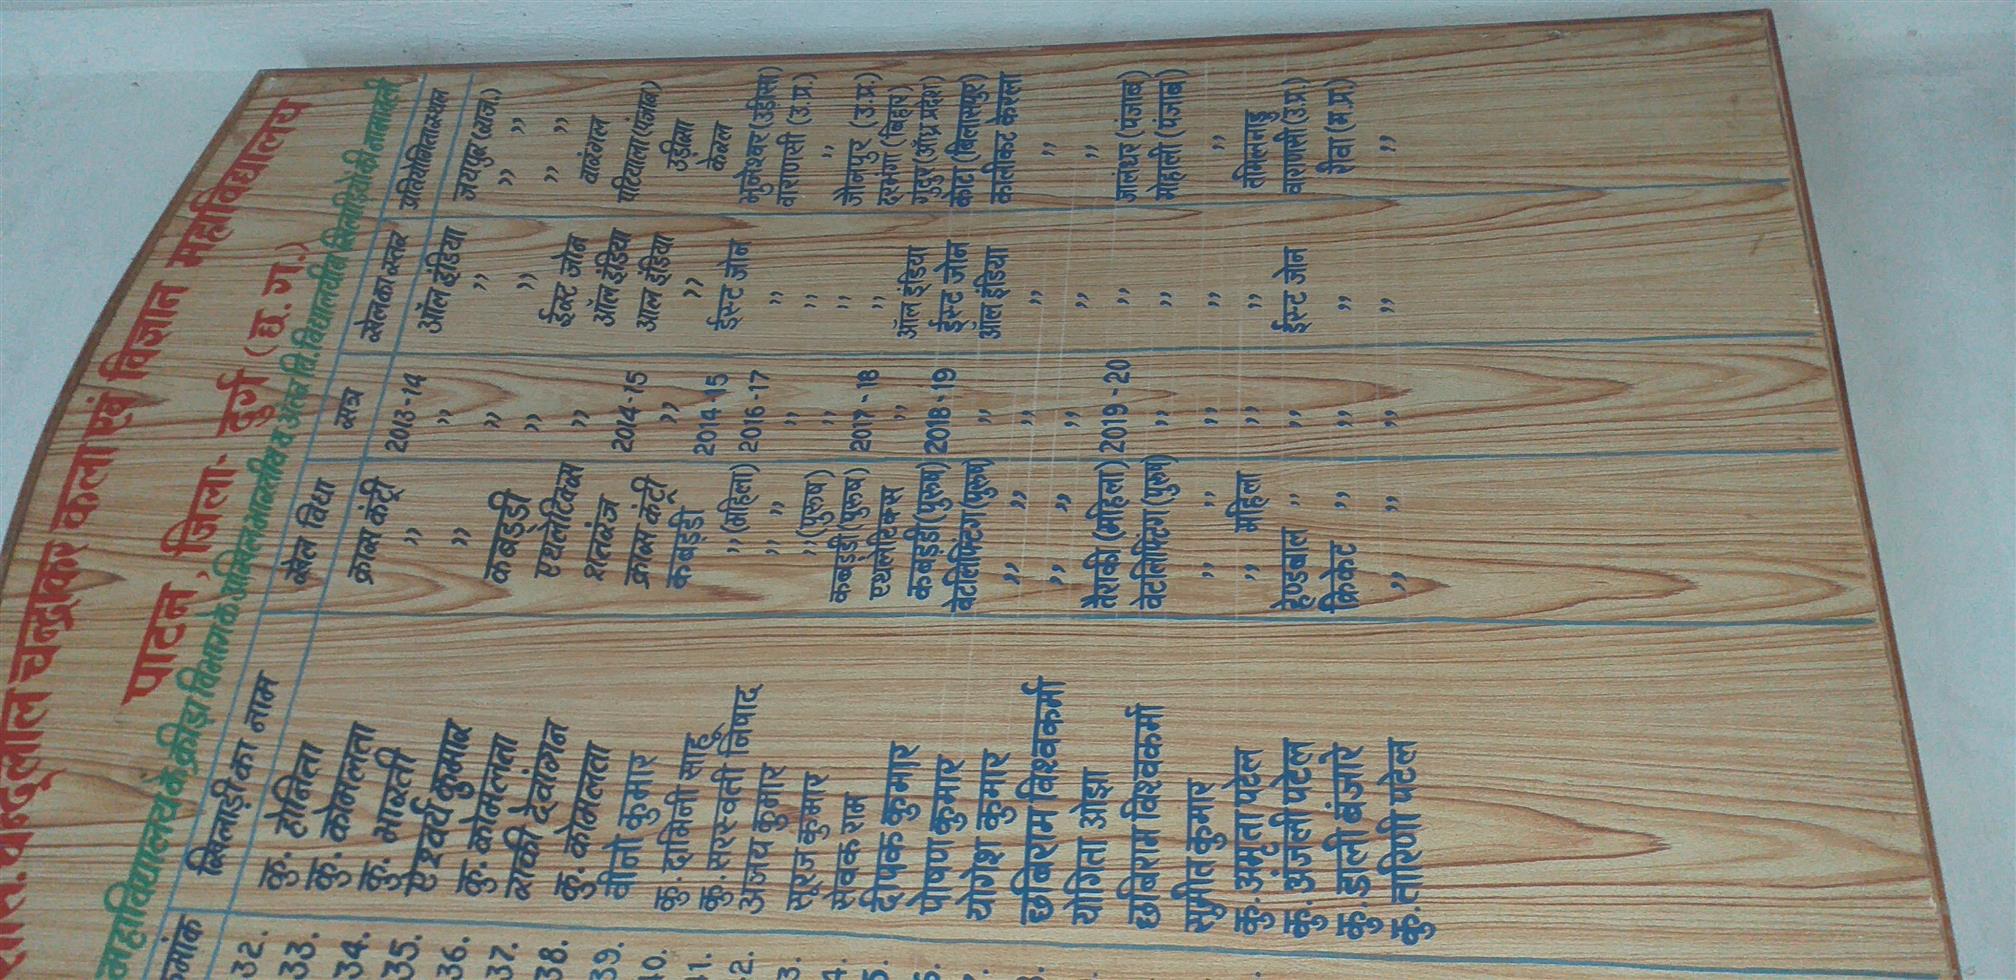 शास. चन्दूलाल चन्द्राकर कला एवं विज्ञान महाविद्यालय
पाटन, जिला- दुर्ग (छ. ग.)
महाविद्यालय के क्रीड़ा विभाग के अखिल भारतीय व अंतर वि. विद्यालयीन खिलाड़ियों की नामावली
क्रमांक खिलाड़ी का नाम खेल विधा सत्र खेल का स्तर प्रतियोगिता स्थल
32. कु. टोनिता क्रास कंट्री 2013-14 ऑल इंडिया जयपुर (राज.)
33. कु. कोमलता ,, ,, ,, ,, ,,
34. कु. भारती ,, ,, ,, ,, ,,
35. ऐश्वर्य कुमार कबड्डी ,, ईस्ट जोन वारंगल
36. कु. कोमलता एथलेटिक्स ,, ऑल इंडिया पटियाला (पंजाब)
37. राकी देवांगन शतरंज 2014-15 आल इंडिया उड़ीसा
38. कु. कोमलता क्रास कंट्री ,, ,, केरल
39. वीनो कुमार कबड्डी 2014-15 ईस्ट जोन भुनेश्वर (उड़ीसा)
40. कु. दामिनी साहू ,, (महिला) 2016-17 ,, वाराणसी (उ.प्र.)
1. कु. सरस्वती निषाद ,, ,, ,, ,, ,,
2. अजय कुमार ,, (पुरूष) ,, ,, जौनपुर (उ.प्र.)
3. सूरज कुमार कबड्डी (पुरूष) 2017-18 ,, दरभंगा (बिहार)
4. सेवक राम एथलेटिक्स ,, ऑल इंडिया गुटुर (आंध्र प्रदेश)
5. दीपक कुमार कबड्डी (पुरूष) 2018-19 ईस्ट जोन कोटा (बिलासपुर)
6. पोषण कुमार वेटलिफ्टिंग (पुरूष) ,, ऑल इंडिया कालीकट केरला
योगेश कुमार ,, ,, ,, ,, ,,
छबिराम विश्वकर्मा ,, ,, ,, ,, ,,
योगिता ओझा तैराकी (महिला) 2019-20 ,, जालंधर (पंजाब)
छबिराम विश्वकर्मा वेटलिफ्टिंग (पुरूष) ,, ,, मोहाली (पंजाब)
सुमीत कुमार ,, ,, ,, ,, ,,
कु. अमृता पटेल ,, महिला ,, ,, तमिलनाडु
कु. अंजली पटेल हेण्डबाल ,, ,, ईस्ट जोन वाराणसी (उ.प्र.)
कु. डाली बंजारे क्रिकेट ,, ,, ,, रीवा (म.प्र.)
कु. तारिणी पटेल ,, ,, ,, ,, ,,